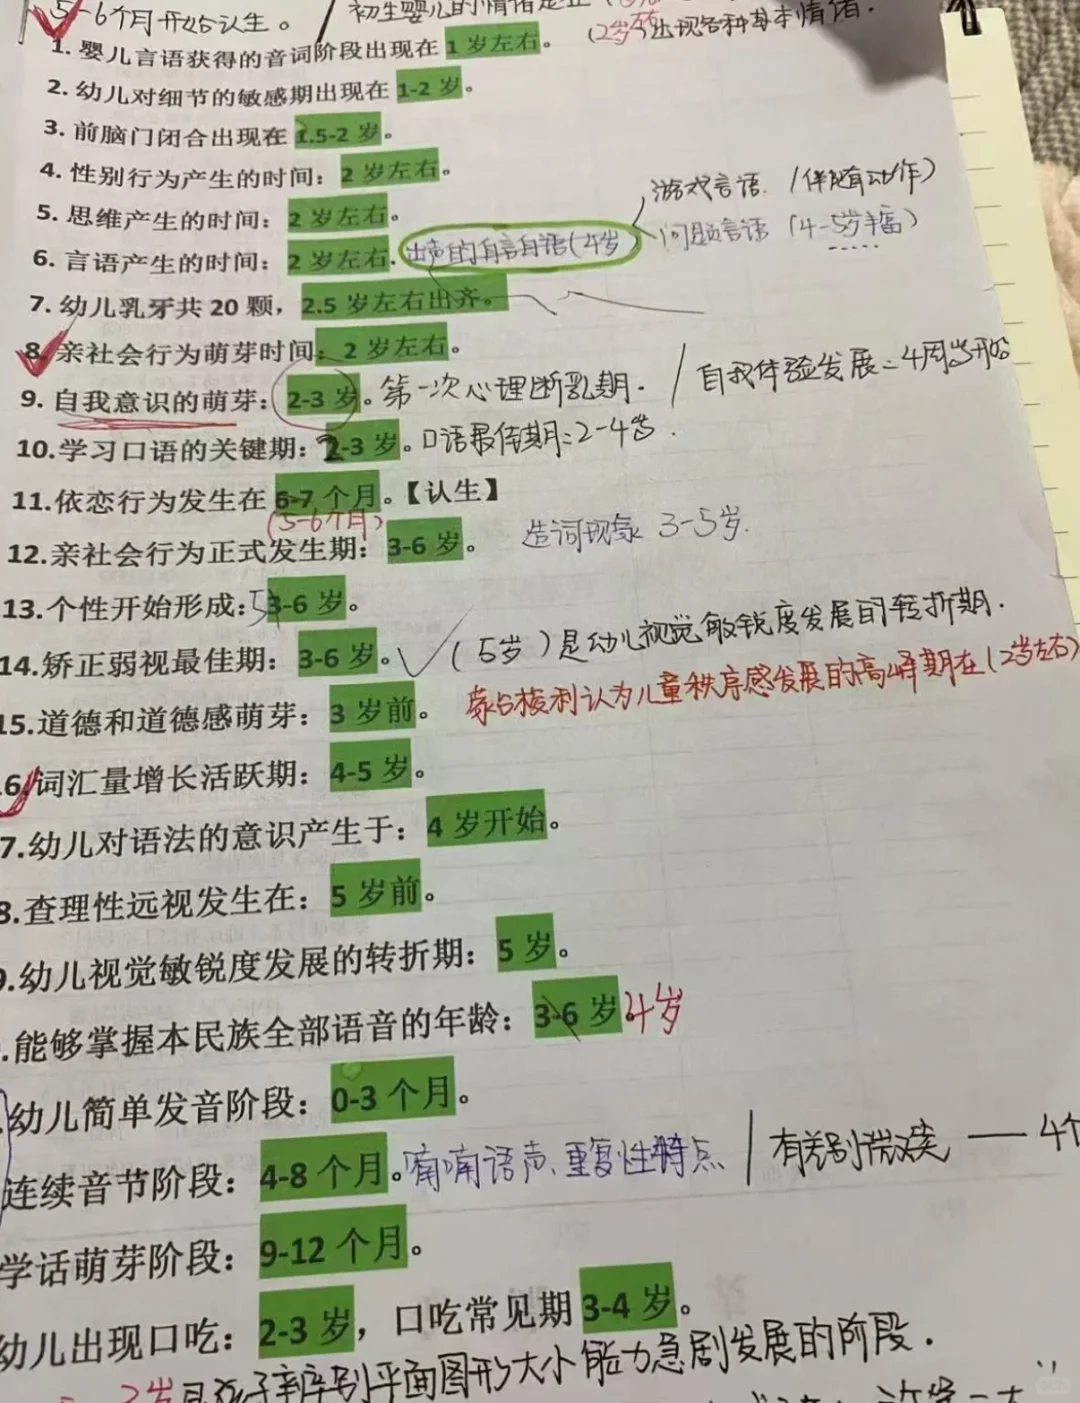 5-6个月开始认生。 / 初生婴儿的情绪是
(2岁左右)出现各种基本情绪.
1. 婴儿言语获得的音词阶段出现在 1 岁左右。
2. 幼儿对细节的敏感期出现在 1-2 岁。
3. 前脑门闭合出现在 1.5-2 岁。
4. 性别行为产生的时间：2 岁左右。
5. 思维产生的时间：2 岁左右。
游戏言语. (伴随动作)
6. 言语产生的时间：2 岁左右. 出声的自言自语(4岁)
问题言语 (4-5岁丰富)
7. 幼儿乳牙共 20 颗，2.5 岁左右出齐。
8. 亲社会行为萌芽时间：2 岁左右。
9. 自我意识的萌芽：2-3 岁。第一次心理断乳期. / 自我体验发展:4周岁开始
10.学习口语的关键期：2-3 岁。口语最佳期:2-4岁.
11.依恋行为发生在 6-7 个月。【认生】
(5-6个月)
12.亲社会行为正式发生期：3-6 岁。 造词现象 3-5岁.
13.个性开始形成：3-6 岁。
14.矫正弱视最佳期：3-6 岁。 (5岁)是幼儿视觉敏锐度发展的转折期.
蒙台梭利认为儿童秩序感发展的高峰期在(2岁左右)
15.道德和道德感萌芽：3 岁前。
6.词汇量增长活跃期：4-5 岁。
7.幼儿对语法的意识产生于：4 岁开始。
8.查理性远视发生在：5 岁前。
9.幼儿视觉敏锐度发展的转折期：5 岁。
.能够掌握本民族全部语音的年龄：3-6 岁 4岁
幼儿简单发音阶段：0-3 个月。
连续音节阶段：4-8 个月。喃喃语声、重复性特点 | 有差别微笑 — 4个
学话萌芽阶段：9-12 个月。
幼儿出现口吃：2-3 岁，口吃常见期 3-4 岁。
3岁是孩子辨别平面图形大小能力急剧发展的阶段.